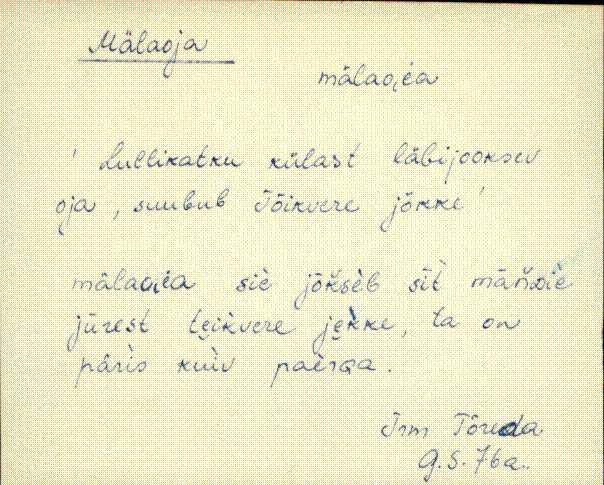 Mälaoja
mälaoi̯a
' Lullikatku külast läbijooksev
oja, suubub Tõikvere jõkke '
mälaoi̯a siè jõkseb sīt māńdiè
jūrest tẹikvere jẹkke, ta on
päris kuìv paèrga.
Irm Tõreda
G. S. 76a.